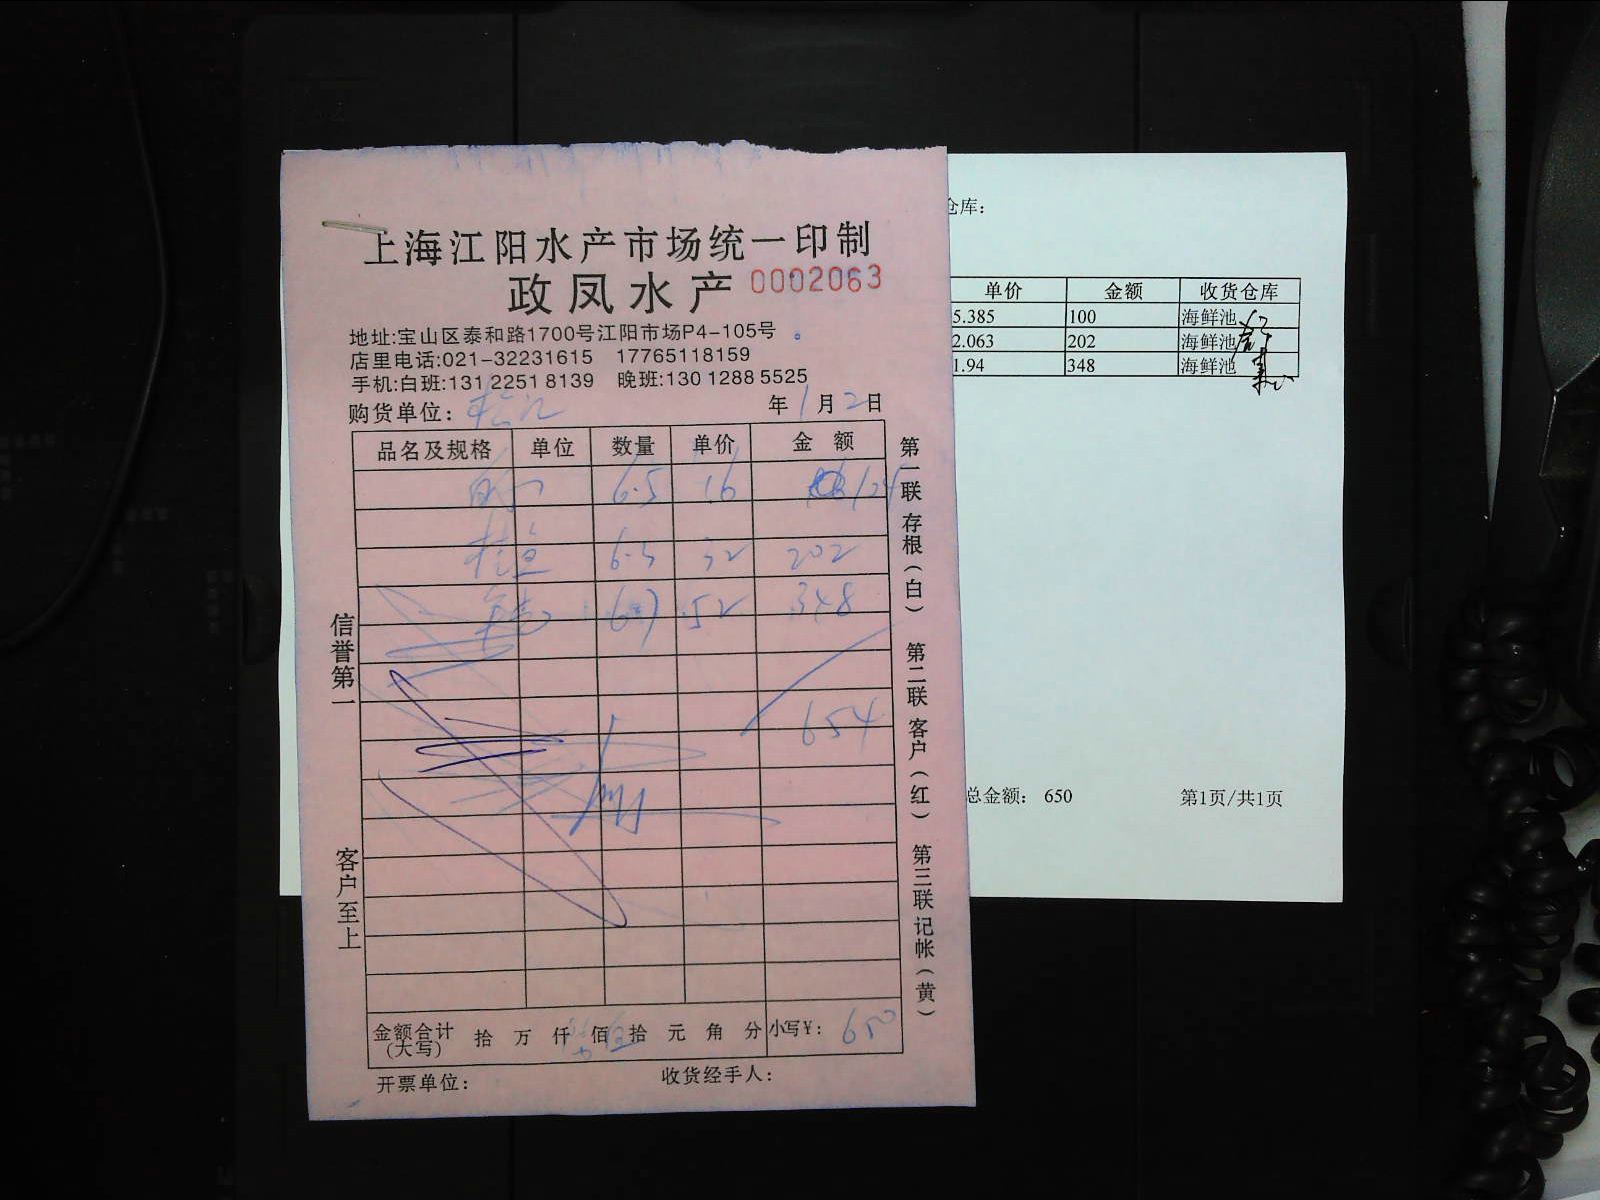 上海江阳水产市场统一印制
政凤水产 0002063
地址:宝山区泰和路1700号江阳市场P4-105号
店里电话:021-32231615 17765118159
手机:白班:131 2251 8139 晚班:130 1288 5525
购货单位: 年1月2日
品名及规格 单位 数量 单价 金额
6.5 16
桂鱼 6.3 32 202
6.7 52 348
654
金额合计(大写) 拾 万 仟 佰 拾 元 角 分 小写¥: 650
开票单位: 收货经手人:
信誉第一
客户至上
第一联存根(白) 第二联客户(红) 第三联记帐(黄)
仓库:
单价 金额 收货仓库
5.385 100 海鲜池
2.063 202 海鲜池
1.94 348 海鲜池
总金额: 650 第1页/共1页